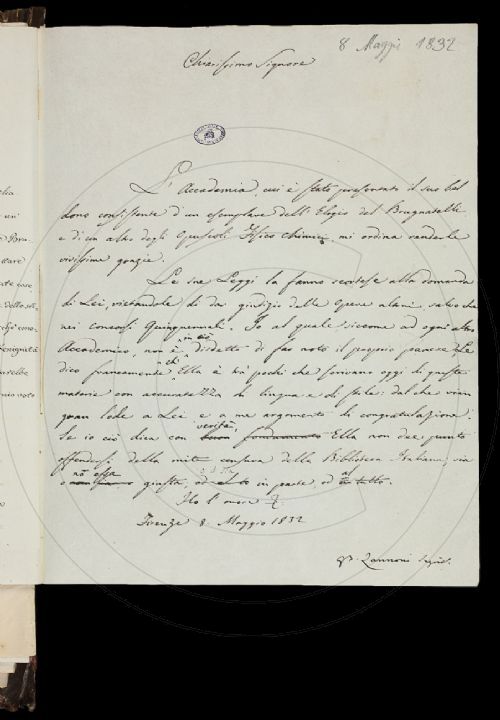 8 Maggio 1832
Chiarissimo Signore
L'Accademia, cui è stato presentato il suo bel
dono consistente d'un esemplare dell'Elogio del Brugnatelli
e di un altro degli Opuscoli Fisico Chimici, mi ordina renderle
vivissime grazie.
Le sue Leggi la fanno scortese alla domanda
di Lei, vietandole di dar giudizio delle opere altrui, salvo che
nei concorsi Quinquennali. Io al quale siccome ad ogni altro
Accademico, non è disdetto di far noto il proprio parere Le
dico francamente ch'Ella è tra' pochi che scrivano oggi di queste
materie con accuratezza di lingua e di stile: dal che viene
gran lode a Lei e a me argomento di congratulazione.
verità,
Se io ciò dico con buon fondamento Ella non dee punto
offendersi della mite censura della Biblioteca Italiana, sia
non essa
o giusta, od in parte, od al tutto.
Ho l'onore
Firenze 8 Maggio 1832
Zannoni Segret.